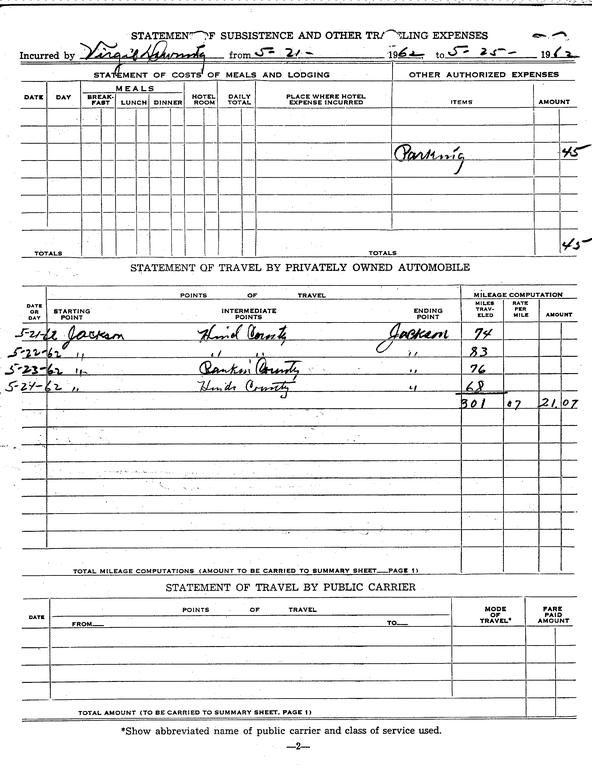 STATEMENT OF SUBSISTENCE AND OTHER TRAVELING EXPENSES
Incurred by Virgil Downing from 5-21- 1962, to 5-25- 1962
STATEMENT OF COSTS OF MEALS AND LODGING OTHER AUTHORIZED EXPENSES
DATE DAY MEALS BREAK-FAST LUNCH DINNER HOTEL ROOM DAILY TOTAL PLACE WHERE HOTEL EXPENSE INCURRED ITEMS AMOUNT
Parking 45
TOTALS TOTALS 45
STATEMENT OF TRAVEL BY PRIVATELY OWNED AUTOMOBILE
POINTS OF TRAVEL MILEAGE COMPUTATION
DATE OR DAY STARTING POINT INTERMEDIATE POINTS ENDING POINT MILES TRAV-ELED RATE PER MILE AMOUNT
5-21-62 Jackson Hind County Jackson 74
5-22-62 " " " " 83
5-23-62 " Rankin County " 76
5-24-62 " Hinds County " 68
301 07 21.07
TOTAL MILEAGE COMPUTATIONS (AMOUNT TO BE CARRIED TO SUMMARY SHEET__PAGE 1)
STATEMENT OF TRAVEL BY PUBLIC CARRIER
DATE POINTS OF TRAVEL MODE OF TRAVEL* FARE PAID AMOUNT
FROM__ TO__
TOTAL AMOUNT (TO BE CARRIED TO SUMMARY SHEET, PAGE 1)
*Show abbreviated name of public carrier and class of service used.
—2—